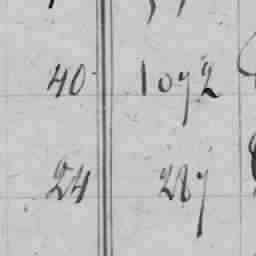 40 1092
24 287